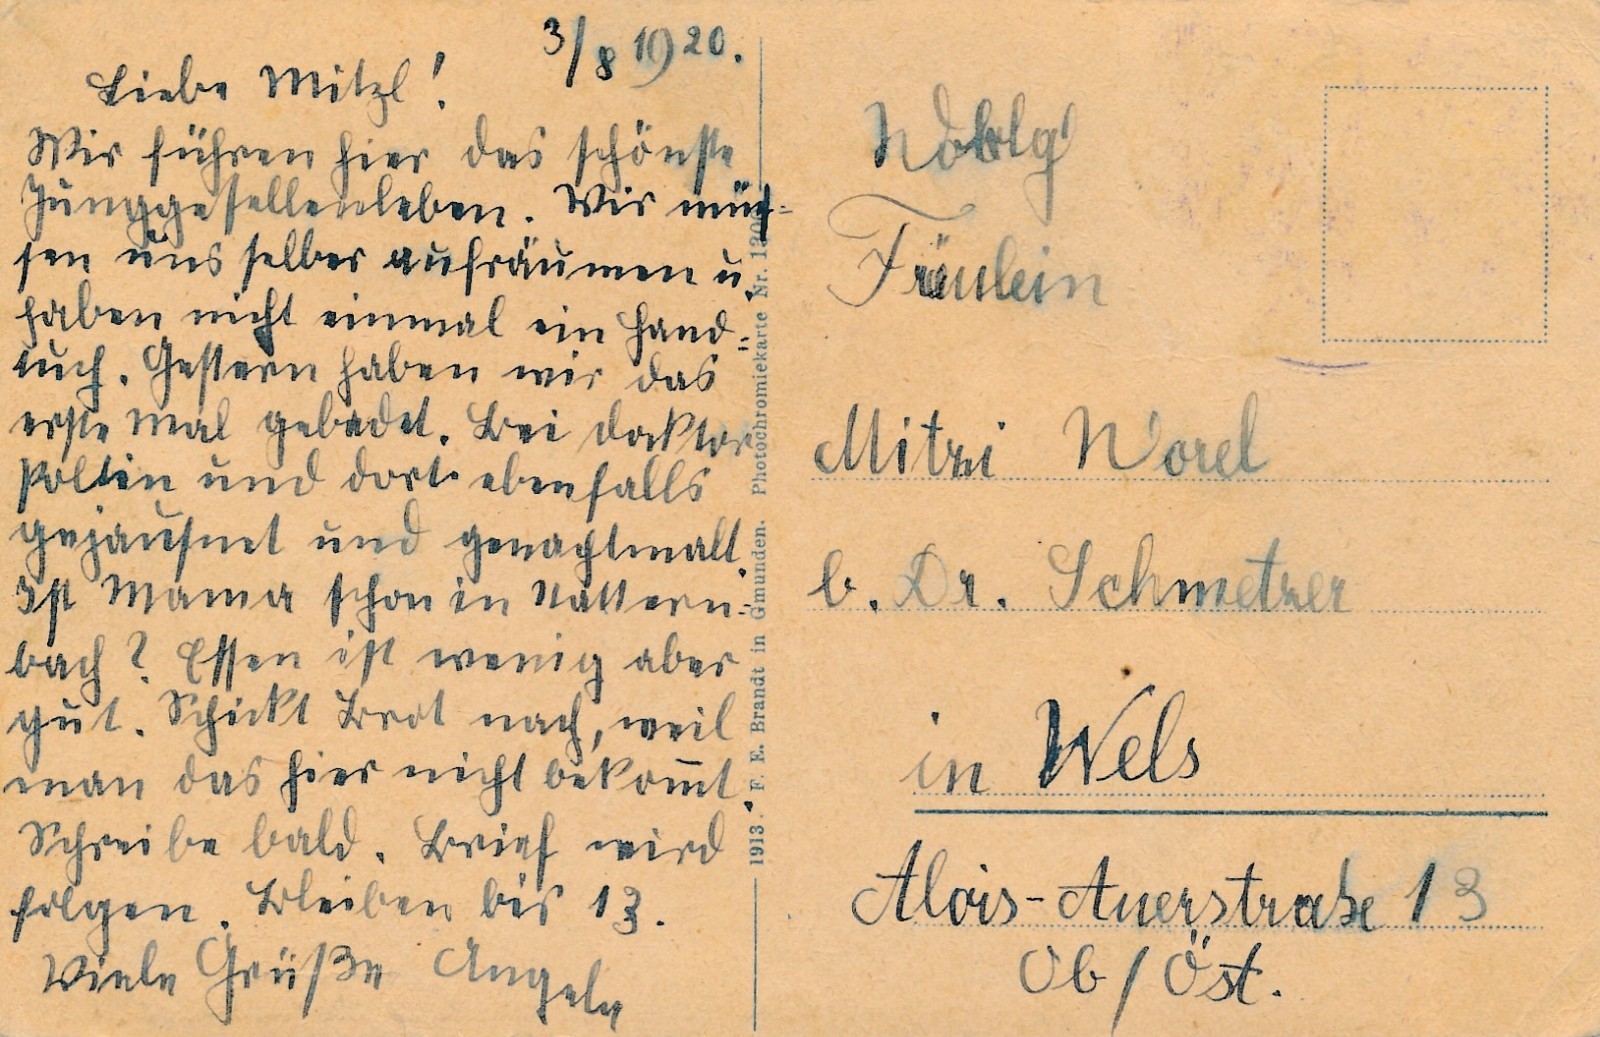 3/8 1920.
Liebe Mitzl!
Wir führen hier das schönste
Junggesellenleben. Wir müs-
sen uns selber aufräumen u.
haben nicht einmal ein Hand=
tuch. Gestern haben wir das
erste mal gebadet. Bei Doktor
Poltin und dort ebenfalls
gejausnet und genachtmalt.
Ist Mama schon in Nattern-
bach? Essen ist wenig aber
gut. Schickt Brot nach, weil
man das hier nicht bekom̅t.
Schreibe bald. Brief wird
folgen. Bleiben bis 13.
Viele Grüße
1913. F. E. Brandt in Gmunden. Photochromiekarte Nr.
Fräulein
Mitzi Worel
b. Dr. Schmetzer
in Wels
Alois-Auerstraße 13
Ob/Öst.